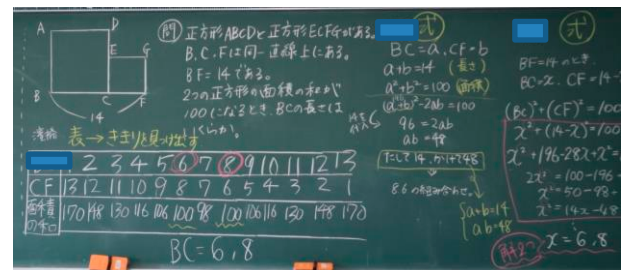 A
D
E
G
B
C
F
14
問 正方形ABCDと正方形ECFGがある。
B.C.Fは同一直線上にある。
BF=14である。
2つの正方形の面積の和が
100になるとき、BCの長さは
いくらか。
表→きまりを見つけ出す
1 2 3 4 5 6 7 8 9 10 11 12 13
CF 13 12 11 10 9 8 7 6 5 4 3 2 1
面積の和 170 148 130 116 106 100 98 100 106 116 130 148 170
BC=6,8
式
BC=a, CF=b
a+b=14 (長さ)
a²+b²=100 (面積)
(a+b)²-2ab=100
96=2ab
ab=48
たして14、かけて48
8 6の組み合わせ。
a+b=14
ab=48
式
BF=14のとき、
BC=x, CF=14-
(BC)²+(CF)²=100
x²+(14-x)²=100
x²+196-28x+x²=
2x²=100-196+
x²=50-98+
x²=14x-48
解2つ
x=6,8